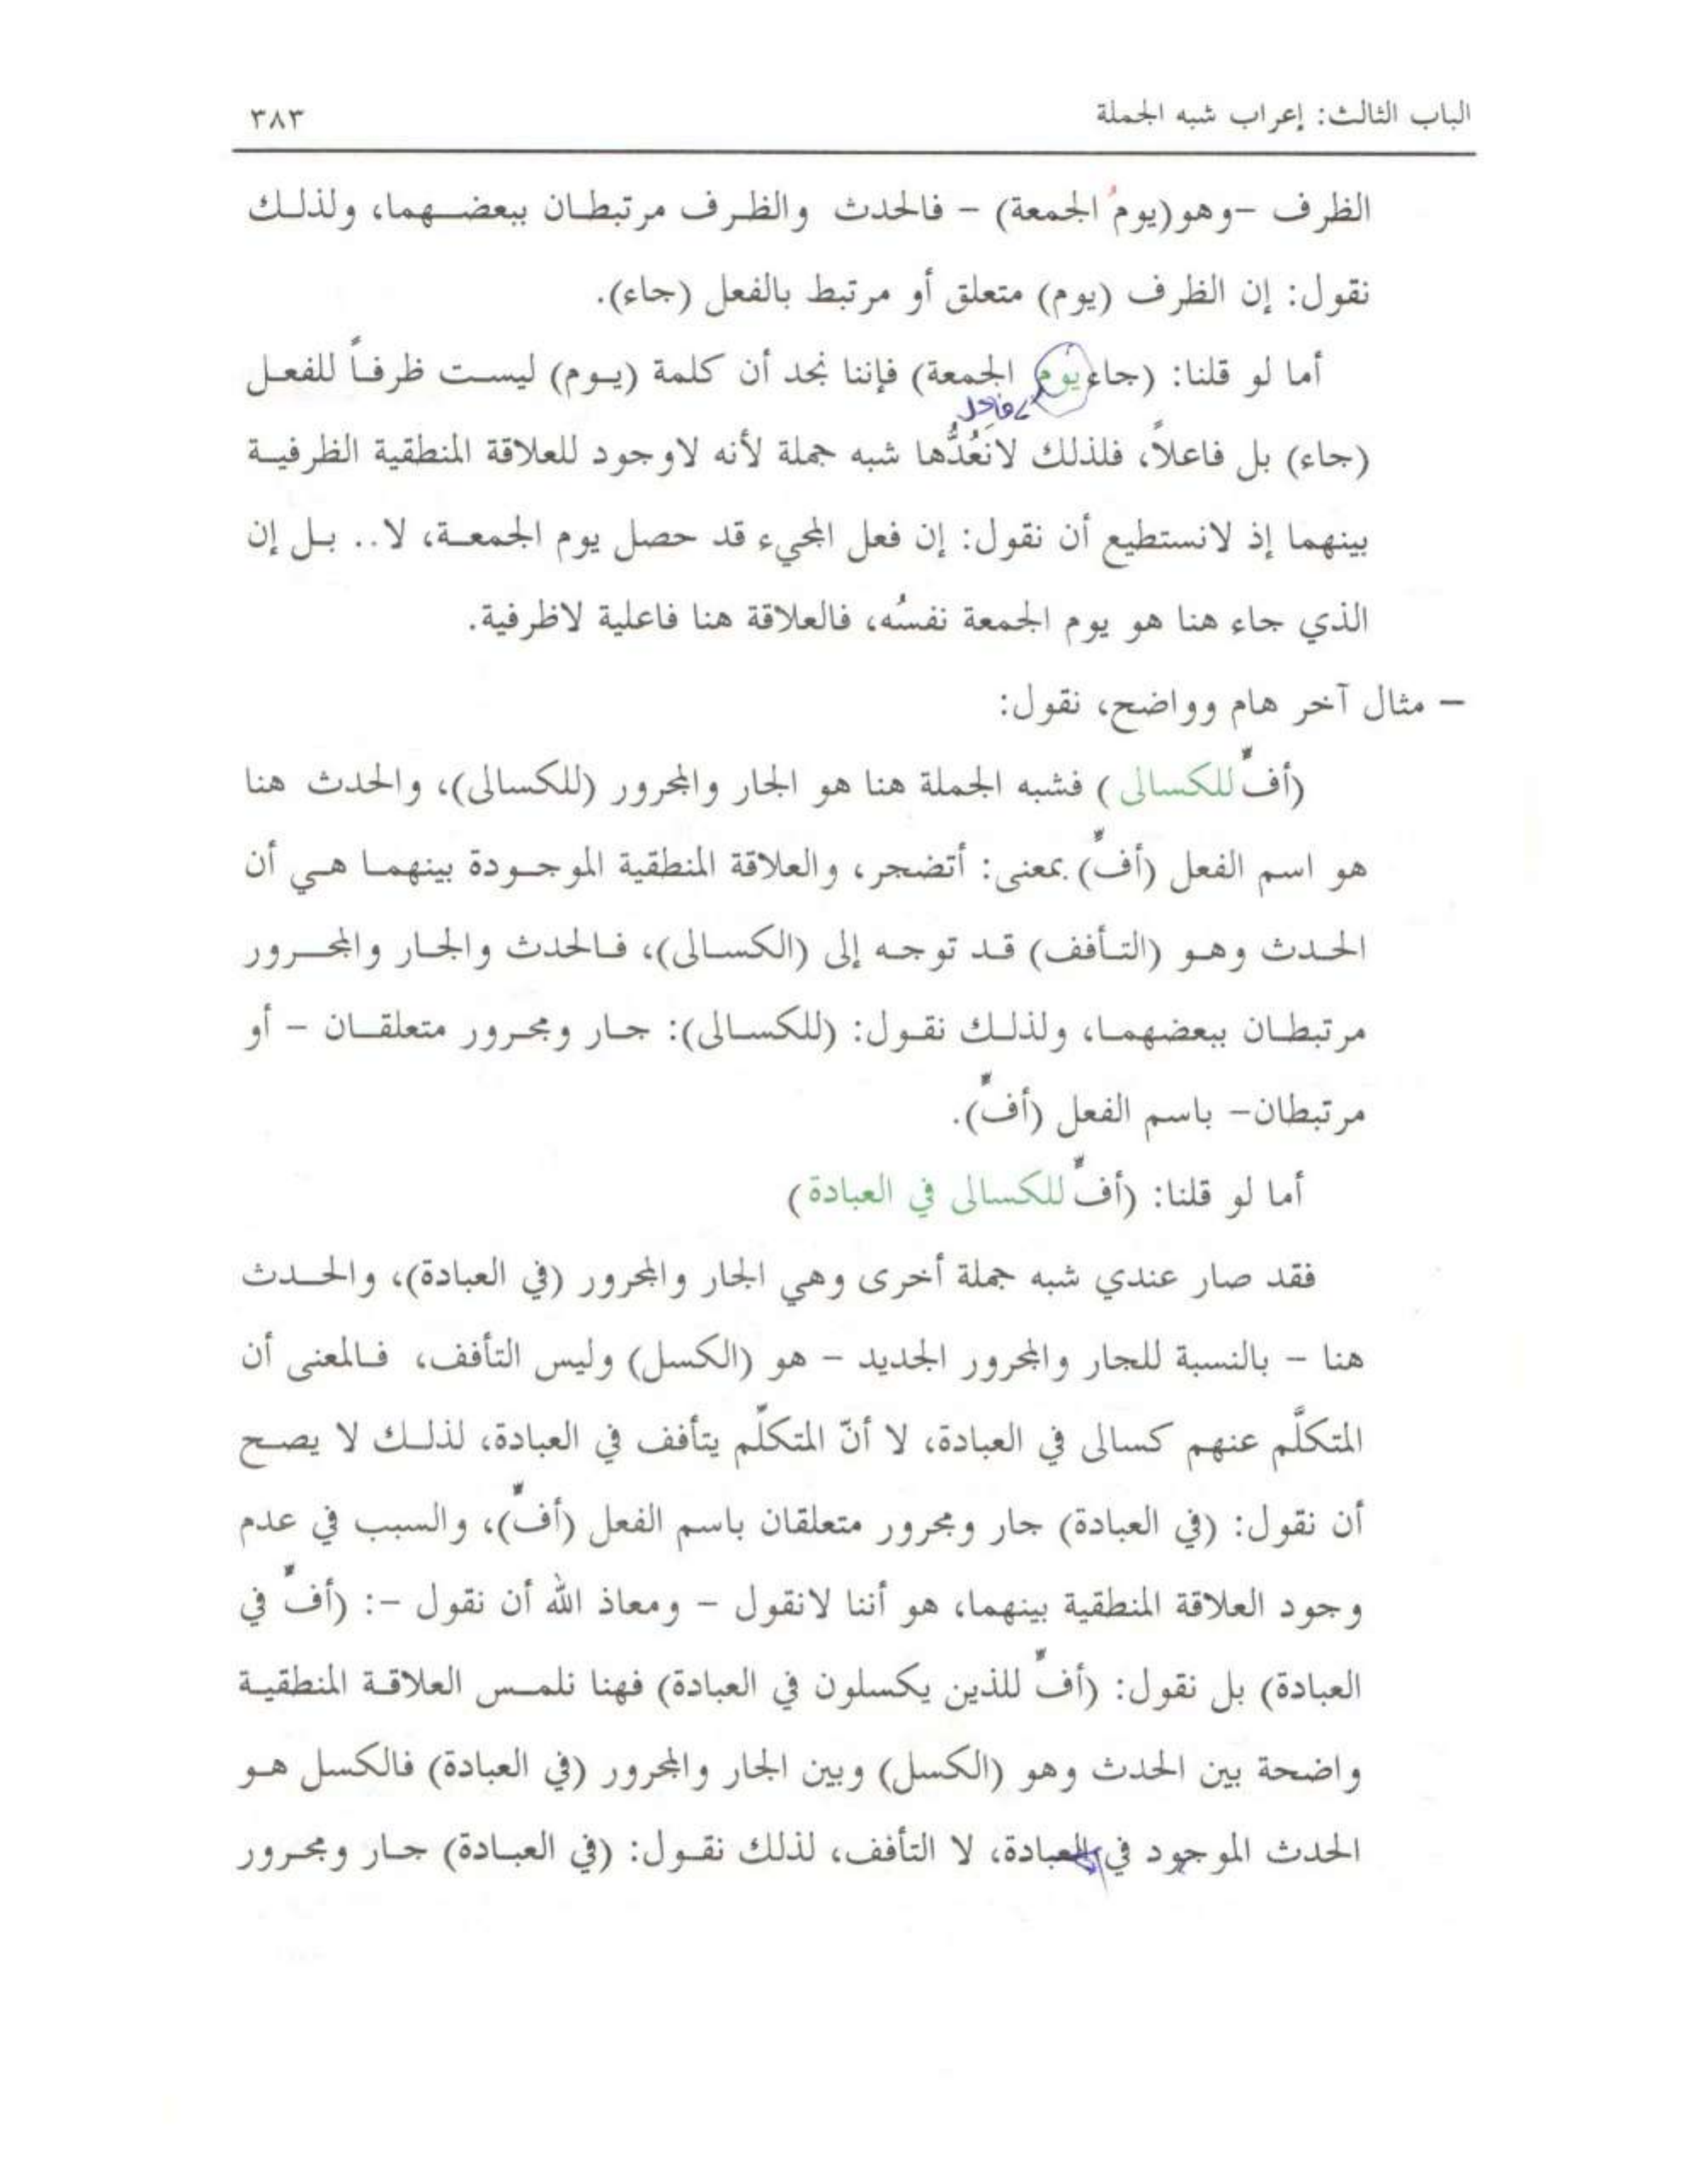 الباب الثالث: إعراب شبه الجملة ٣٨٣
الظرف -وهو(يومُ الجمعة) - فالحدث والظرف مرتبطان ببعضهما، ولذلك
نقول: إن الظرف (يوم) متعلق أو مرتبط بالفعل (جاء).
أما لو قلنا: (جاء يومُ الجمعة) فإننا نجد أن كلمة (يوم) ليست ظرفاً للفعل
فاعل
(جاء) بل فاعلاً، فلذلك لانَعُدُّها شبه جملة لأنه لاوجود للعلاقة المنطقية الظرفية
بينهما إذ لانستطيع أن نقول: إن فعل المجيء قد حصل يوم الجمعة، لا.. بل إن
الذي جاء هنا هو يوم الجمعة نفسُه، فالعلاقة هنا فاعلية لاظرفية.
- مثال آخر هام وواضح، نقول:
(أفٌّ للكسالى) فشبه الجملة هنا هو الجار والمجرور (للكسالى)، والحدث هنا
هو اسم الفعل (أفٌّ) بمعنى: أتضجر، والعلاقة المنطقية الموجودة بينهما هي أن
الحدث وهو (التأفف) قد توجه إلى (الكسالى)، فالحدث والجار والمجرور
مرتبطان ببعضهما، ولذلك نقول: (للكسالى): جار ومجرور متعلقان - أو
مرتبطان- باسم الفعل (أفٌّ).
أما لو قلنا: (أفٌّ للكسالى في العبادة)
فقد صار عندي شبه جملة أخرى وهي الجار والمجرور (في العبادة)، والحدث
هنا - بالنسبة للجار والمجرور الجديد - هو (الكسل) وليس التأفف، فالمعنى أن
المتكلَّم عنهم كسالى في العبادة، لا أنّ المتكلّم يتأفف في العبادة، لذلك لا يصح
أن نقول: (في العبادة) جار ومجرور متعلقان باسم الفعل (أفٌّ)، والسبب في عدم
وجود العلاقة المنطقية بينهما، هو أننا لانقول - ومعاذ الله أن نقول -: (أفٌّ في
العبادة) بل نقول: (أفٌّ للذين يكسلون في العبادة) فهنا نلمس العلاقة المنطقية
واضحة بين الحدث وهو (الكسل) وبين الجار والمجرور (في العبادة) فالكسل هو
الحدث الموجود في العبادة، لا التأفف، لذلك نقول: (في العبادة) جار ومجرور